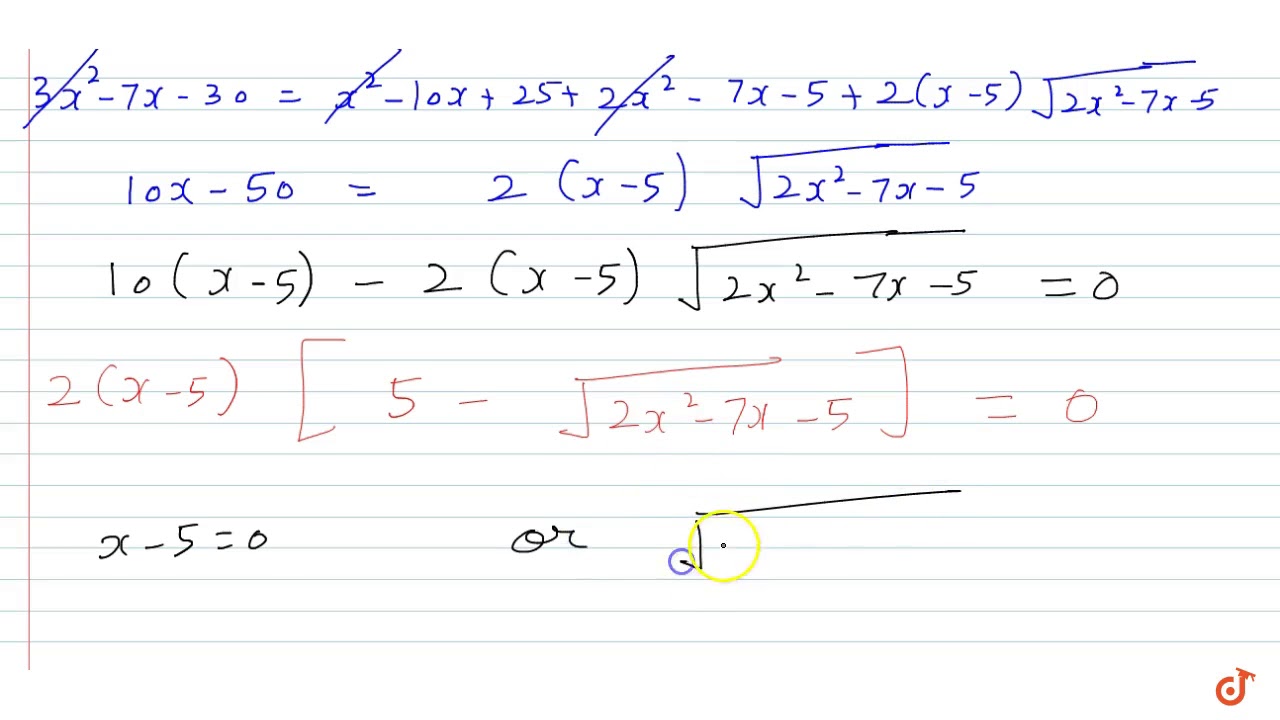 3x² - 7x - 30 = x² - 10x + 25 + 2x² - 7x - 5 + 2(x - 5) √(2x² - 7x - 5)
10x - 50 = 2 (x - 5) √(2x² - 7x - 5)
10(x - 5) - 2 (x - 5) √(2x² - 7x - 5) = 0
2(x - 5) [ 5 - √(2x² - 7x - 5) ] = 0
x - 5 = 0 or √